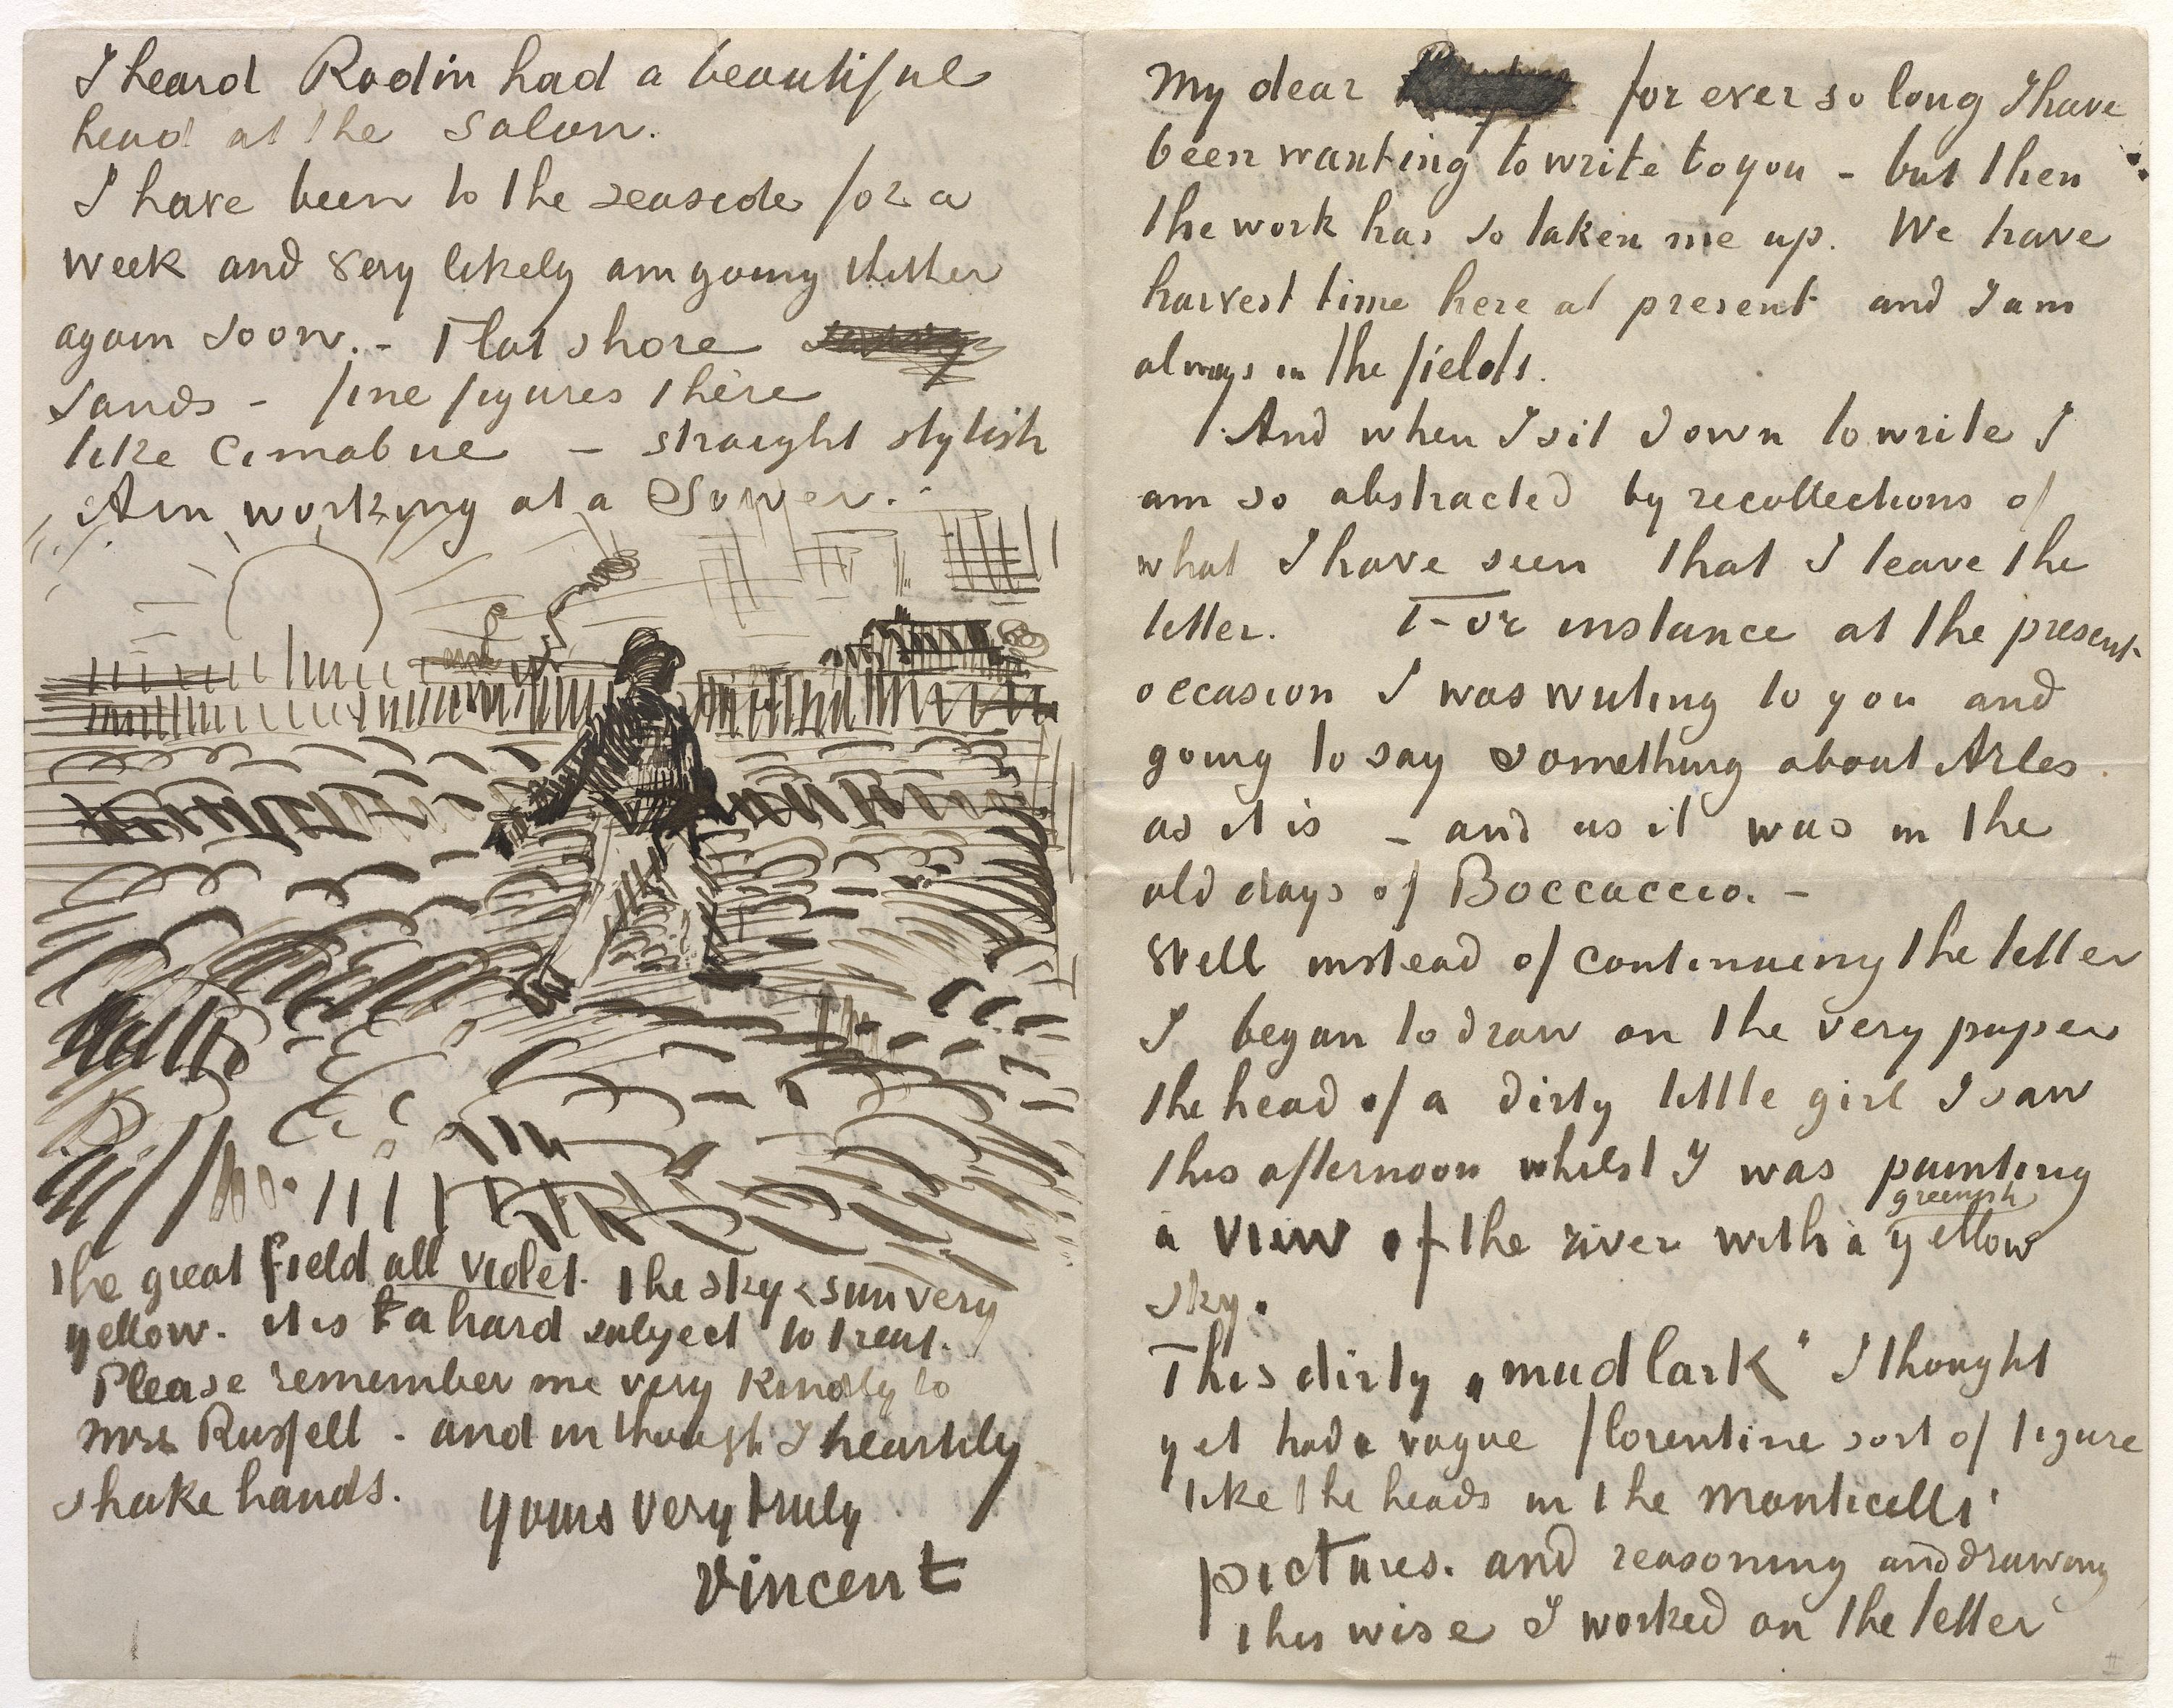 My dear for ever so long I have
been wanting to write to you – but then
the work has so taken me up. We have
harvest time here at present and I am
always in the fields.
And when I sit down to write I
am so abstracted by recollections of
what I have seen that I leave the
letter. For instance at the present
occasion I was writing to you and
going to say something about Arles
as it is – and as it was in the
old days of Boccaccio. –
Well instead of continuing the letter
I began to draw on the very paper
the head of a dirty little girl I saw
this afternoon whilst I was painting
a view of the river with a greenish yellow
sky.
This dirty „mudlark" I thought
yet had a vague florentine sort of figure
like the heads in the Monticelli
pictures. and reasoning and drawing
this wise I worked on the letter
I heard Rodin had a beautiful
head at the Salon.
I have been to the seaside for a
week and very likely am going thither
again soon. – Flat shore
sands – fine figures there
like Cimabue – straight stylish
Am working at a Sower.
the great field all violet. the sky & sun very
yellow. it is a hard subject to treat.
Please remember me very kindly to
mrs Russell – and in thought I heartily
shake hands.
yours very truly
Vincent